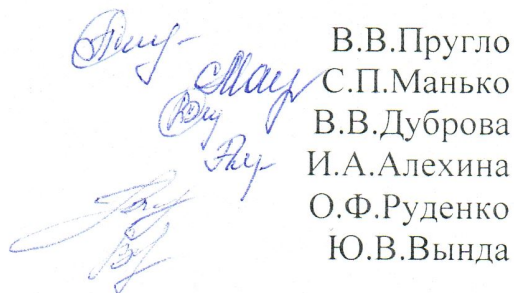 В.В.Пругло
С.П.Манько
В.В.Дуброва
И.А.Алехина
О.Ф.Руденко
Ю.В.Вында